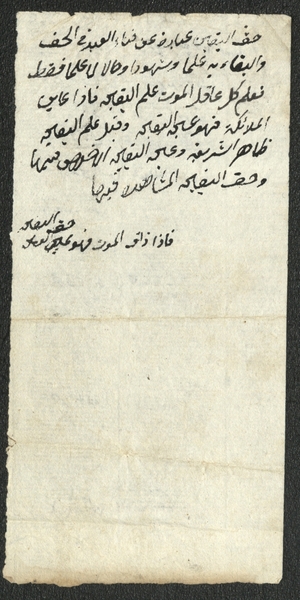 حق اليقين عبارة عن فناء العبد في الحق
والبقاء به علما وشهودا وحالا لا علما فقط
فعلم كل عاقل الموت علم اليقين فاذا عاين
الملائكة فهو عين اليقين وقيل علم اليقين
ظاهر الشريعة وعين اليقين الاخلاص فيها
وحق اليقين المشاهدة فيها
فاذا ذاق الموت فهو حق اليقين